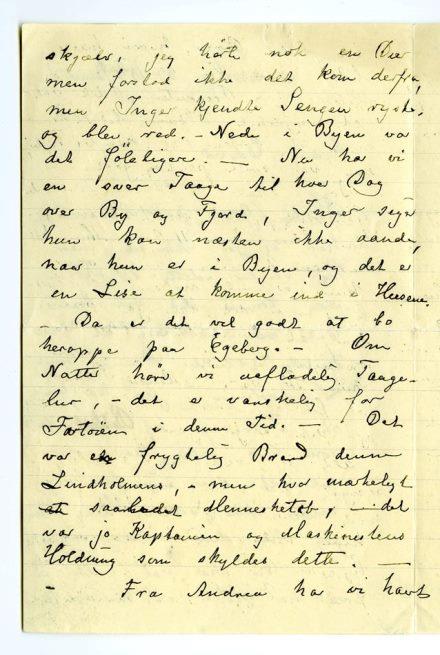 skjælv, jeg hørte nok en Dur
men forstod ikke det kom derfra,
men Inger kjendte Sengen ryste,
og blev ræd. – Nede i Byen var
det føleligere. — Nu har vi
en svær Taage til hver Dag
over By og Fjord, Inger siger
hun kan næsten ikke aande,
naar hun er i Byen, og det er
en Lise at komme ind i Husene.
– Da er det vel godt at bo
heroppe paa Egeberg. – Om
Natten hører vi uafladelig Taage-
lur, – det er vanskelig for
Fartøien i denne Tid. — Det
var en frygtelig Brand denne
Lindholmens, – men hvor mærkeligt
at saa Mennesketab, – det
var jo Kaptainen og Maskinistens
Holdning som skyldes dette. —
– Fra Andrea har vi havt